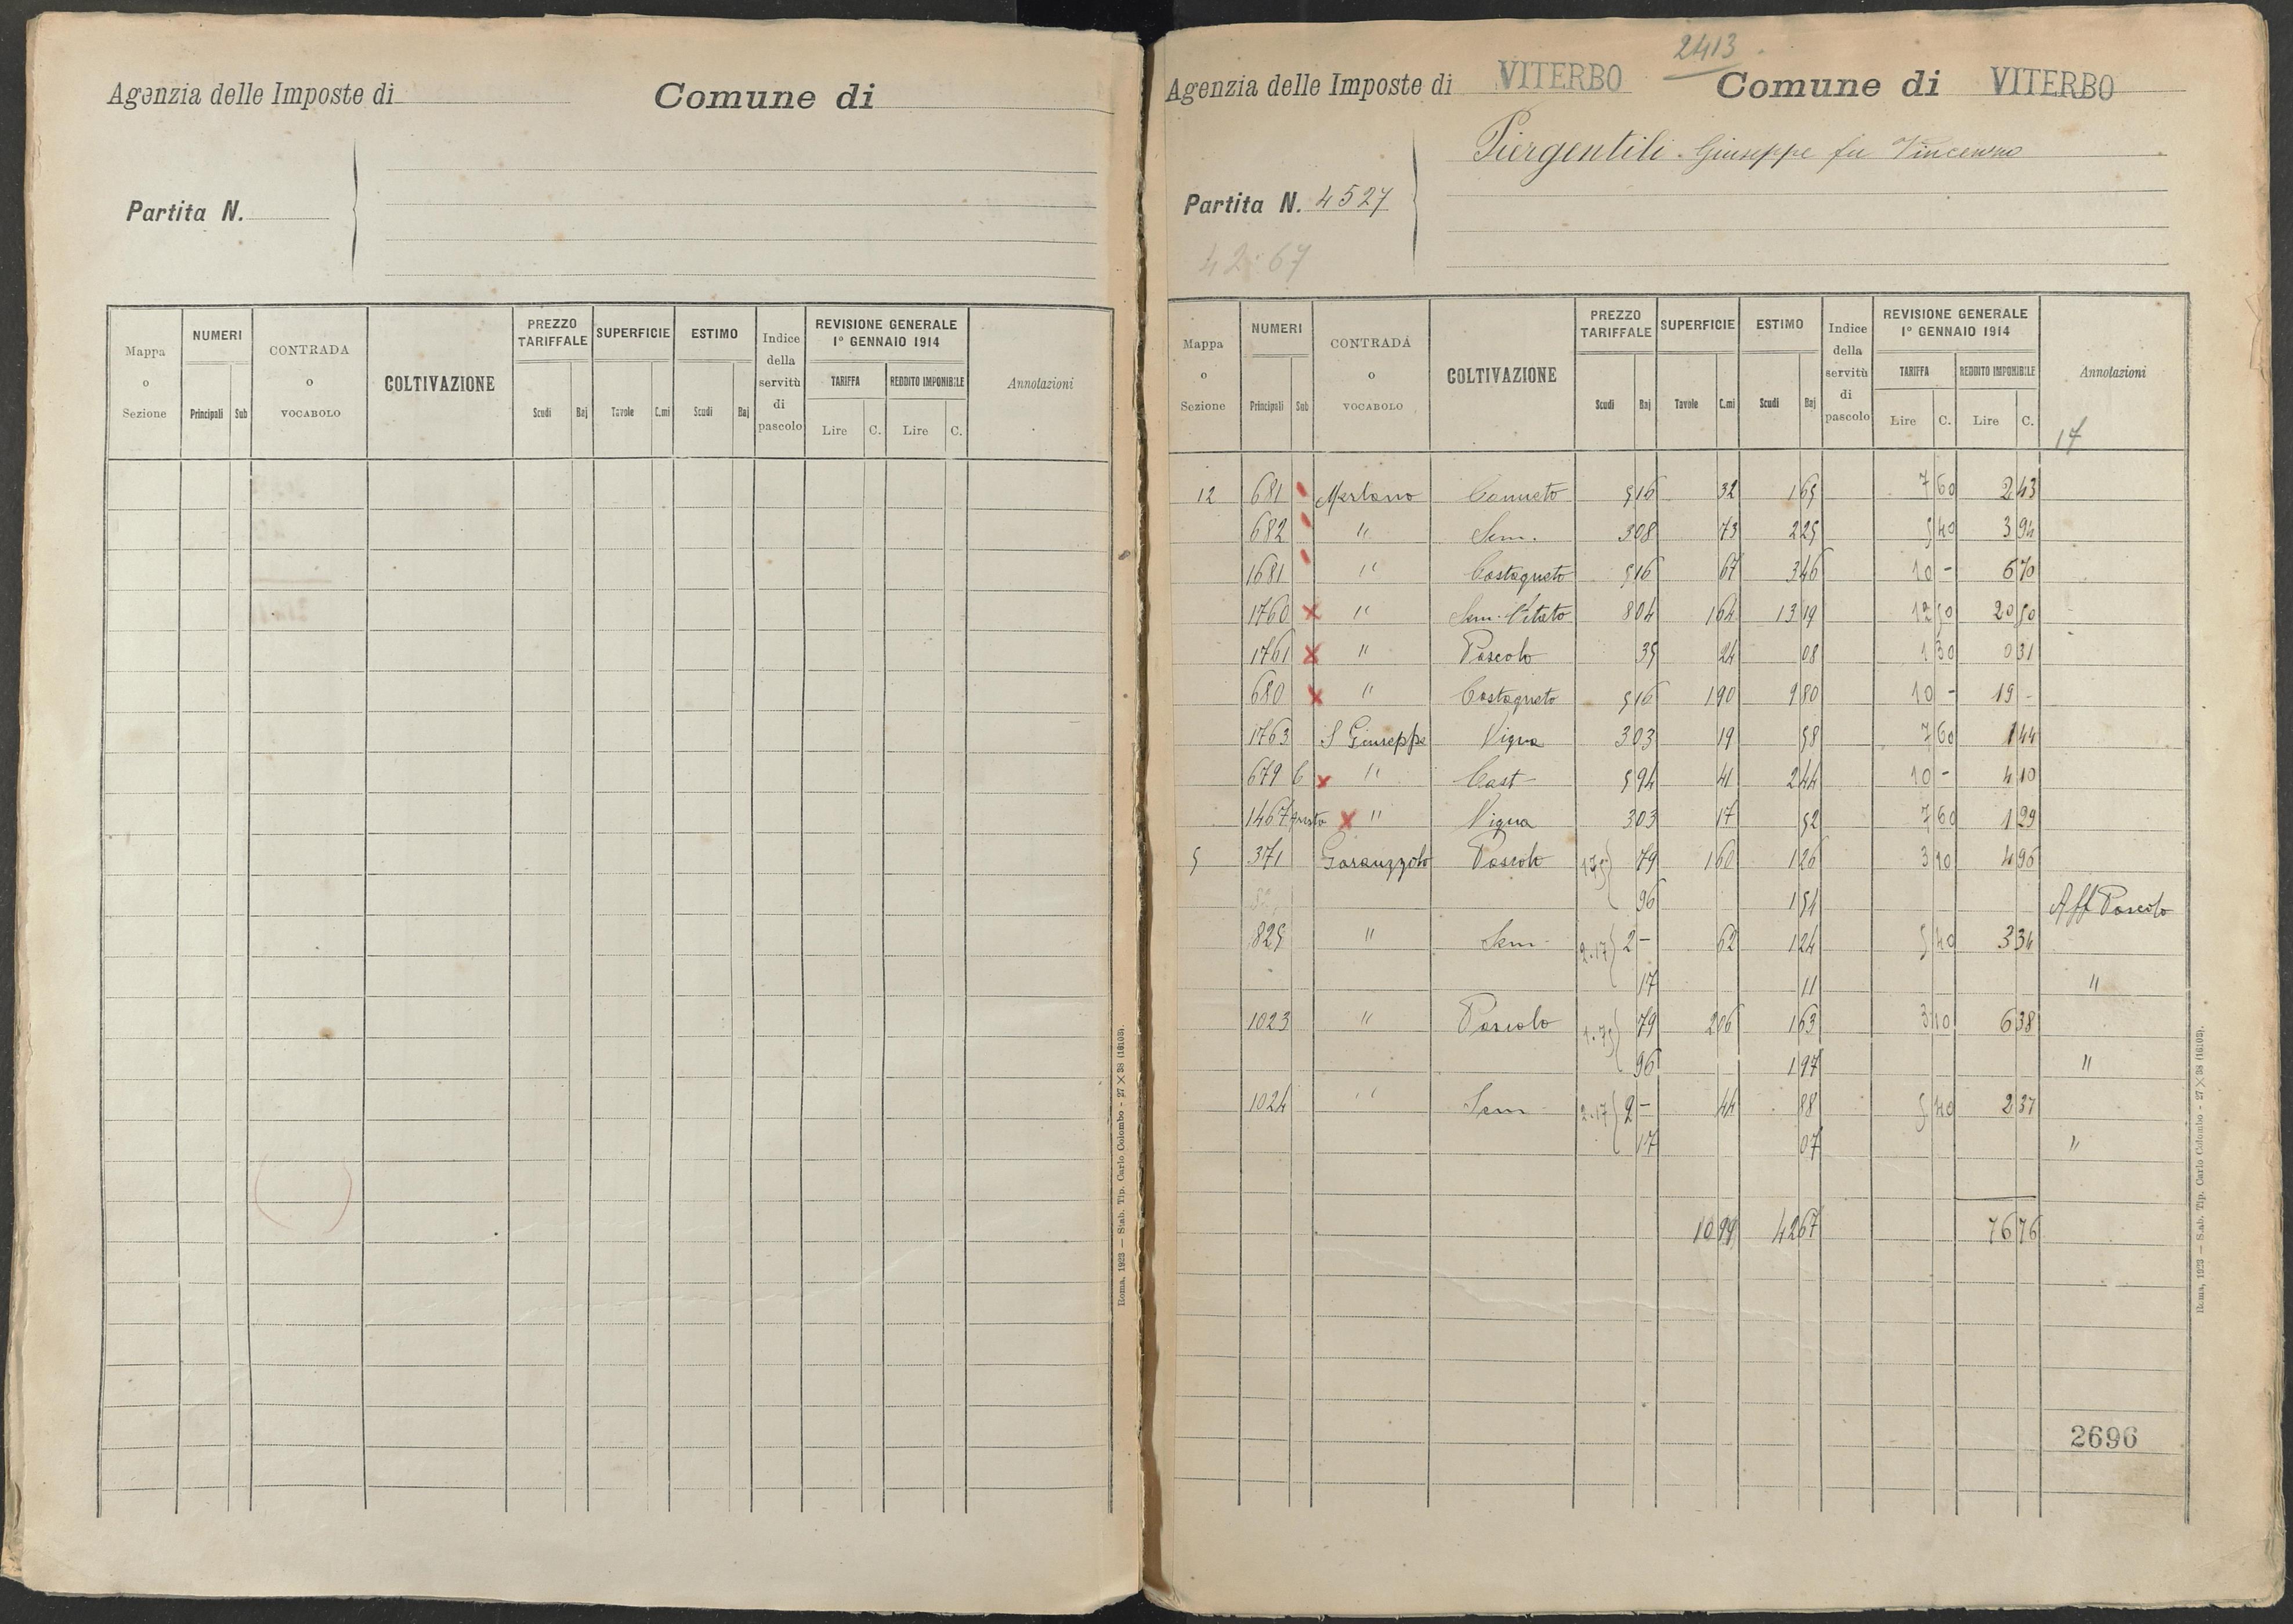 Agenzia delle Imposte di
Comune di
Partita N.
Mappa o Sezione
NUMERI
Principali Sub
CONTRADA o VOCABOLO
COLTIVAZIONE
PREZZO TARIFFALE
Scudi Baj
SUPERFICIE
Tavole C.mi
ESTIMO
Scudi Baj
Indice della servitù di pascolo
REVISIONE GENERALE 1° GENNAIO 1914
TARIFFA
Lire C.
REDDITO IMPONIBILE
Lire C.
Annotazioni
Roma, 1923 — Stab. Tip. Carlo Colombo - 27 X 38 (16103).
2413
Agenzia delle Imposte di VITERBO Comune di VITERBO
Piergentili Giuseppe fu Vincenzo
Partita N. 4527
42:67
Mappa o Sezione
NUMERI
Principali Sub
CONTRADA o VOCABOLO
COLTIVAZIONE
PREZZO TARIFFALE
Scudi Baj
SUPERFICIE
Tavole C.mi
ESTIMO
Scudi Baj
Indice della servitù di pascolo
REVISIONE GENERALE 1° GENNAIO 1914
TARIFFA
Lire C.
REDDITO IMPONIBILE
Lire C.
Annotazioni
17
12 681 Merlano Canneto 5 16 32 1 65 7 60 2 43
682 " Sem. 3 08 73 2 25 5 40 3 94
1681 " Castagneto 5 16 67 3 46 10 - 6 70
1760 x " Sem. Vitato 8 04 1 64 13 19 12 50 20 50
1761 x " Pascolo 35 24 08 1 30 0 31
680 x " Castagneto 5 16 1 90 9 80 10 - 19 -
1763 S Giuseppe Vigna 3 03 19 58 7 60 1 44
679 6 x " Cast 5 94 41 2 44 10 - 4 10
1467 x " Vigna 3 03 17 52 7 60 1 29
5 371 Pascolo 1.75 79 1 60 1 26 3 10 4 96
96 1 54 Aff Pascolo
825 " Sem 2.17 2 - 62 1 24 5 40 3 34
17 11 "
1023 " Pascolo 1.75 79 2 06 1 63 3 10 6 38
96 1 97 "
1024 " Sem 2.17 2 - 44 88 5 40 2 37
17 07 "
10 99 42 67 76 76
2696
Roma, 1923 — Stab. Tip. Carlo Colombo - 27 X 38 (16103).